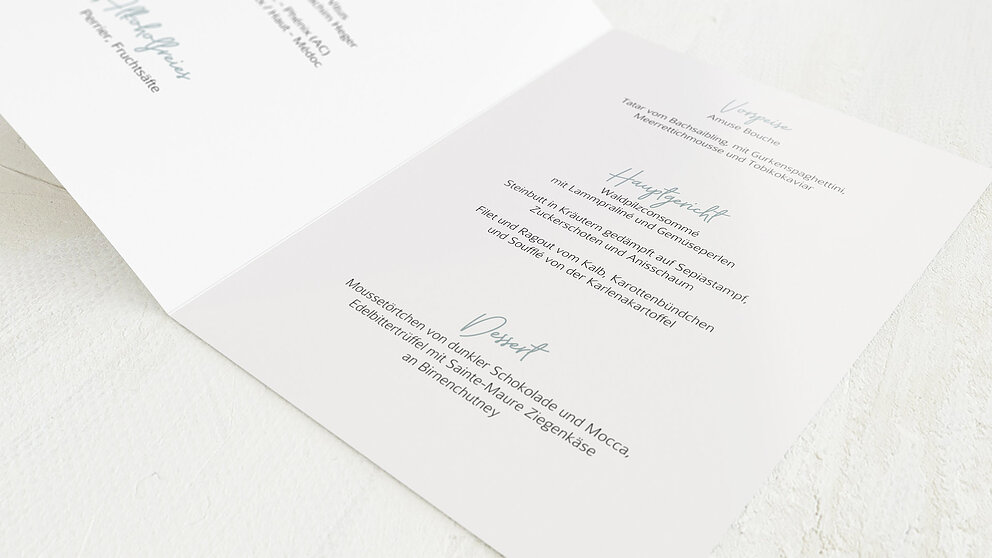 Vitus
Joachim Heger
Phénix (AC)
/ Haut - Médoc
Alkoholfreies
Perrier, Fruchtsäfte
Vorspeise
Amuse Bouche
Tatar vom Bachsaibling, mit Gurkenspaghettini,
Meerrettichmousse und Tobikokaviar
Hauptgericht
Waldpilzconsommé
mit Lammpraliné und Gemüseperlen
Steinbutt in Kräutern gedämpft auf Sepiastampf,
Zuckerschoten und Anisschaum
Filet und Ragout vom Kalb, Karottenbündchen
und Soufflé von der Karlenakartoffel
Dessert
Moussetörtchen von dunkler Schokolade und Mocca,
Edelbittertrüffel mit Sainte-Maure Ziegenkäse
an Birnenchutney